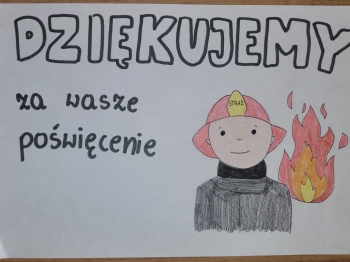 DZIĘKUJEMY
za wasze
poświęcenie
STRAŻ